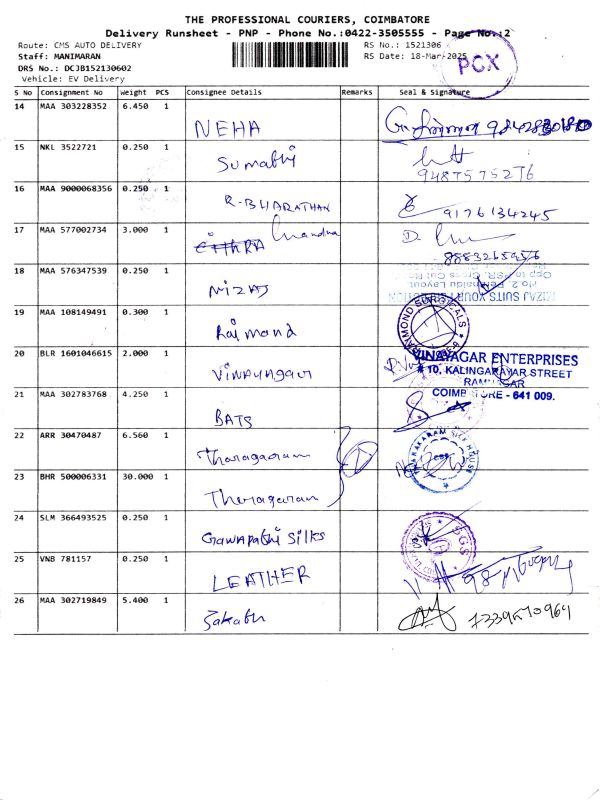 THE PROFESSIONAL COURIERS, COIMBATORE
Delivery Runsheet - PNP - Phone No.:0422-3505555 - Page No.:2
Route: CMS AUTO DELIVERY
RS No.: 1521306
Staff: MANIMARAN
RS Date: 18-Mar-2025
DRS No.: DCJB152130602
Vehicle: EV Delivery
PCX
S No Consignment No Weight PCS Consignee Details Remarks Seal & Signature
14 MAA 303228352 6.450 1 NEHA
15 NKL 3522721 0.250 1 Sumathi
9487575276
16 MAA 9000068356 0.250 1 R-BHARATHAN 9176134245
17 MAA 577002734 3.000 1 CITHRA Chandra D.
8883265956
18 MAA 576347539 0.250 1 NIZAJ
NIZAJ SUITS YOUR
No. 2, Layout
Opp to Cross Cut
19 MAA 108149491 0.300 1 Raimond
RAYMOND
20 BLR 1601046615 2.000 1 Vinayagar
VINAYAGAR ENTERPRISES
# 10, KALINGARAYAR STREET
RAMNAGAR
COIMBATORE - 641 009.
21 MAA 302783768 4.250 1 BATS
22 ARR 30470487 6.560 1 Tharagaram
SILK HOUSE
23 BHR 500006331 30.000 1 Tharagaram
24 SLM 366493525 0.250 1 Ganapathi Silks
SGS
25 VNB 781157 0.250 1 LEATHER
26 MAA 302719849 5.400 1 Zakabu